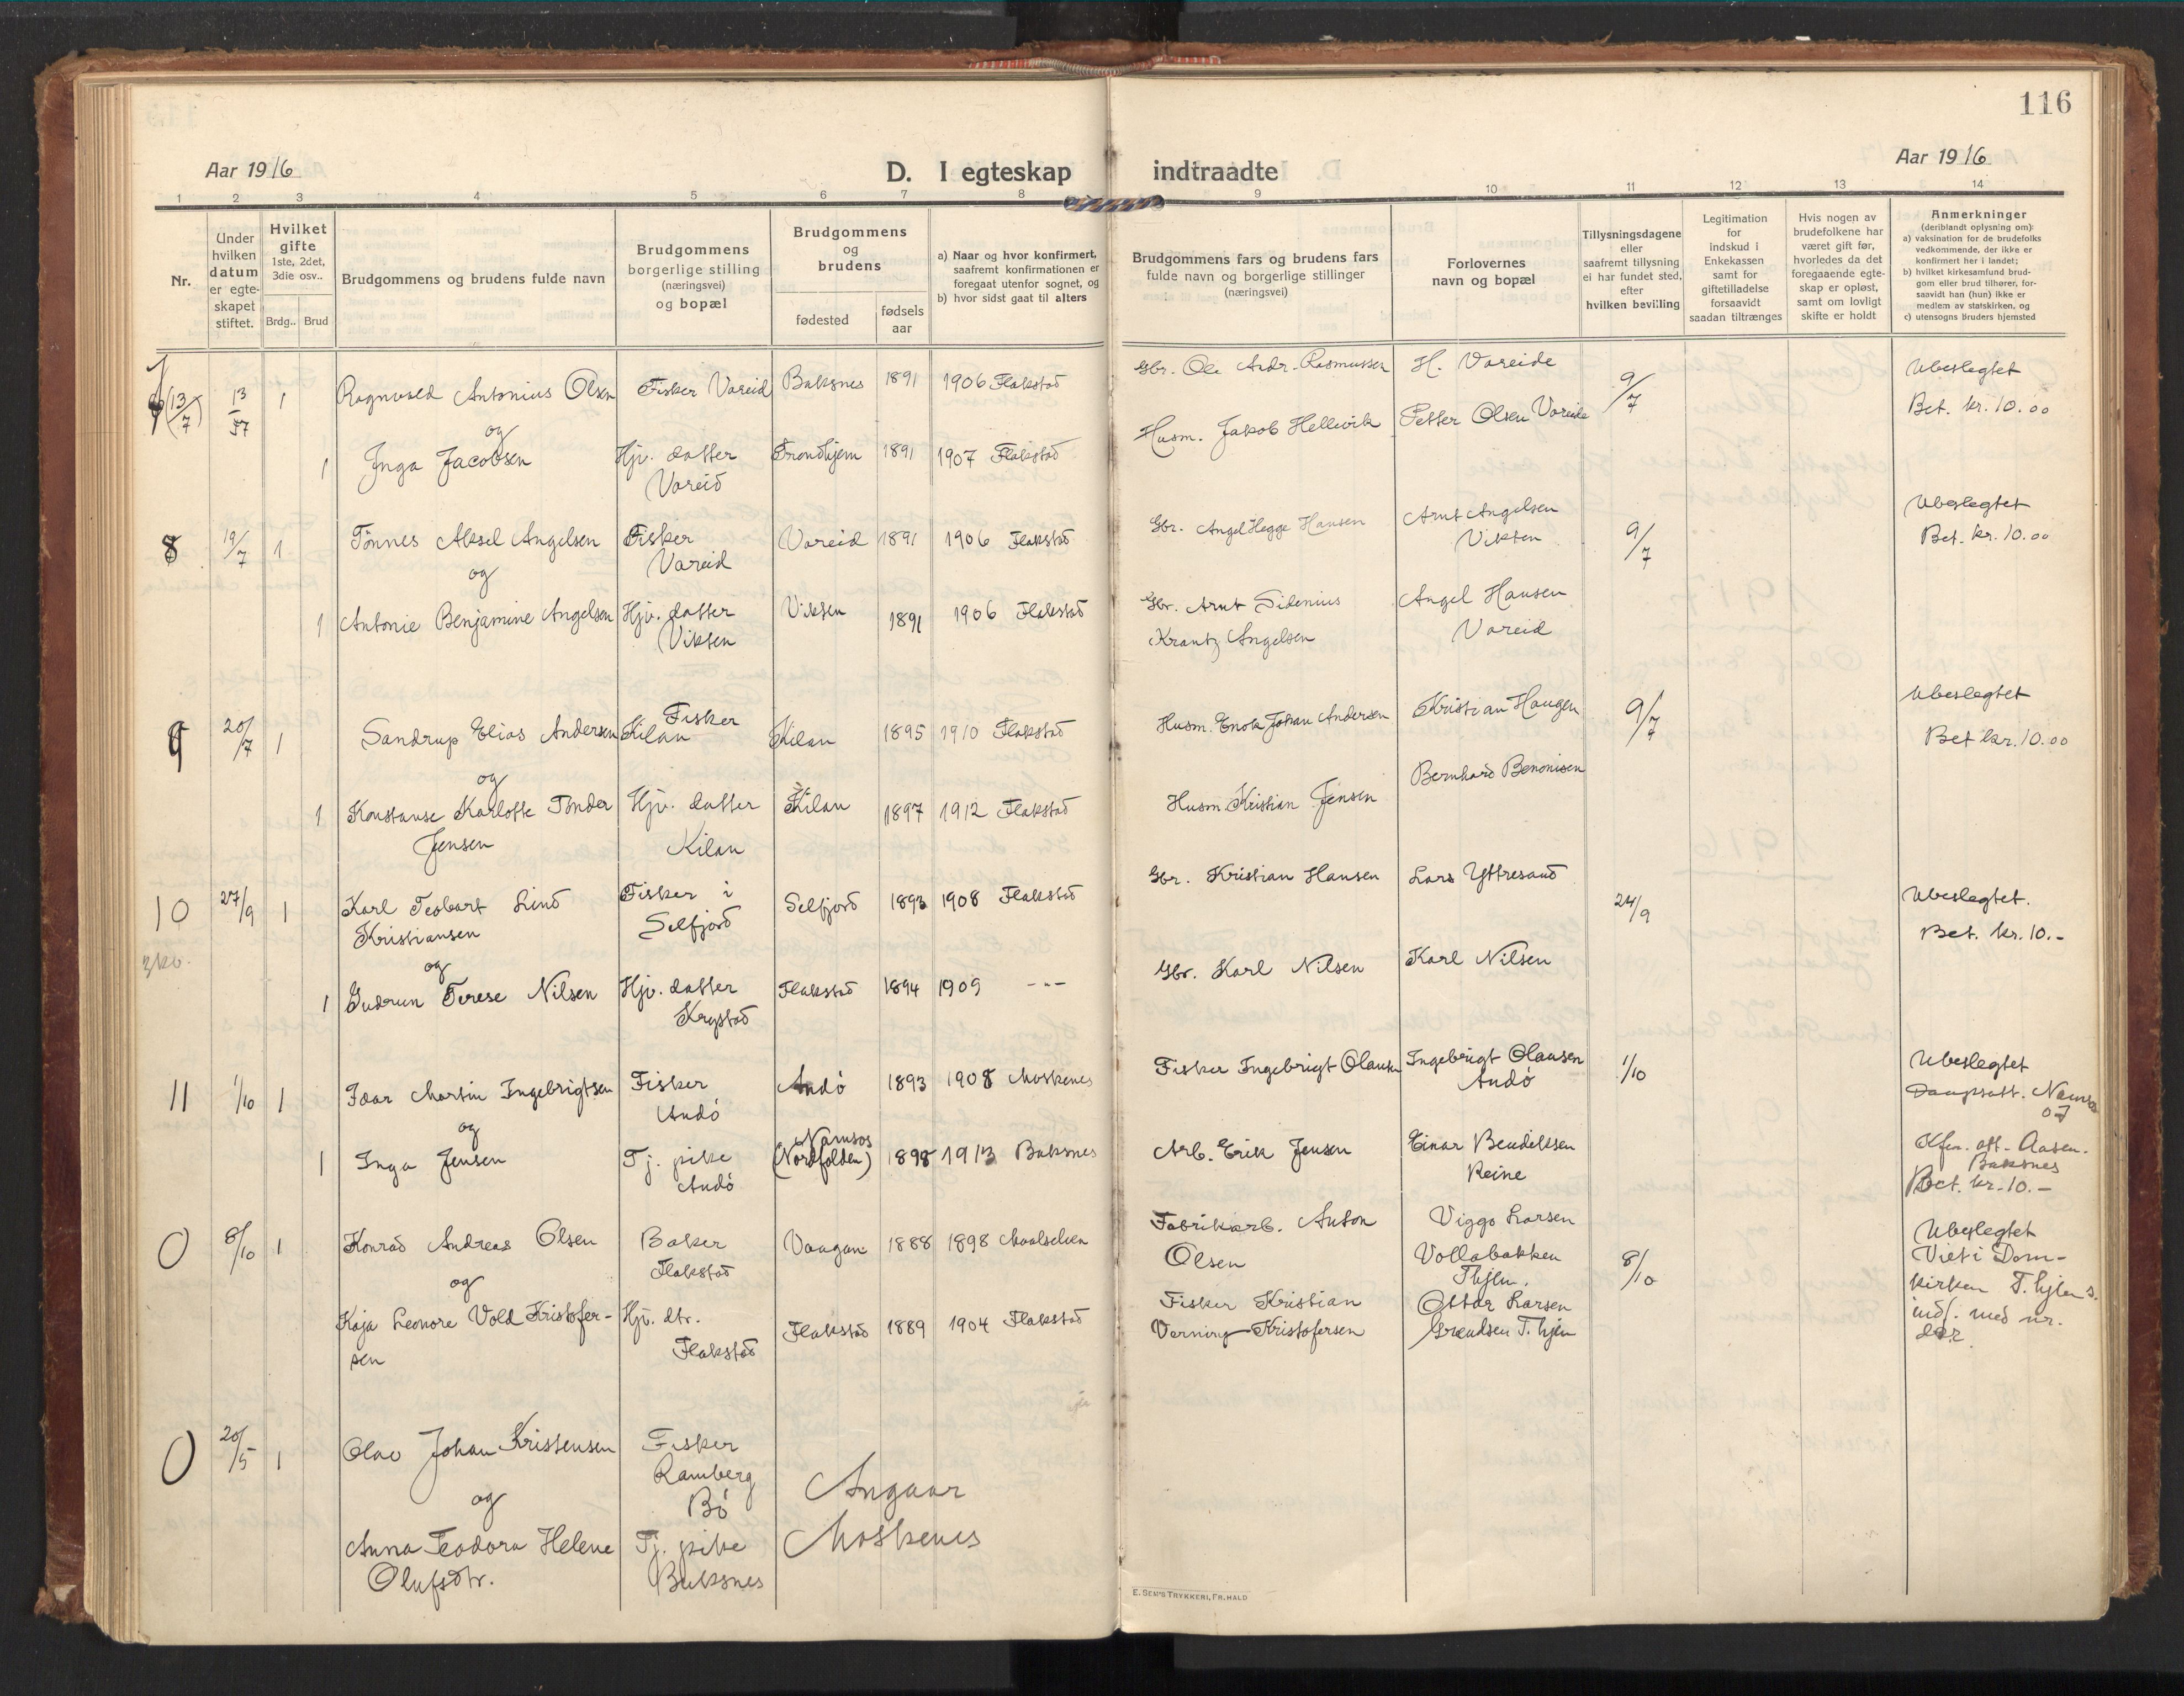 116
Aar 1916
D. I egteskap indtraadte
Aar 1916
1 2 3 4 5 6 7 8 9 10 11 12 13 14
Nr.
Under hvilken datum er egteskapet stiftet.
Hvilket gifte
1ste, 2det, 3die osv..
Brdg.. Brud
Brudgommens og brudens fulde navn
Brudgommens borgerlige stilling (næringsvei) og bopæl
Brudgommens og brudens
fødested
fødsels aar
a) Naar og hvor konfirmert, saafremt konfirmationen er foregaat utenfor sognet, og
b) hvor sidst gaat til alters
Brudgommens fars og brudens fars fulde navn og borgerlige stillinger (næringsvei)
Forlovernes navn og bopæl
Tillysningsdagene eller saafremt tillysning ei har fundet sted, efter hvilken bevilling
Legitimation for indskud i Enkekassen samt for giftetilladelse forsaavidt saadan tiltrænges
Hvis nogen av brudefolkene har været gift før, hvorledes da det foregaaende egteskap er opløst, samt om lovligt skifte er holdt
Anmerkninger (deriblandt oplysning om):
a) vaksination for de brudefolks vedkommende, der ikke er konfirmert her i landet;
b) hvilket kirkesamfund brudgom eller brud tilhører, forsaavidt han (hun) ikke er medlem av statskirken, og
c) utensogns bruders hjemsted
(13/7) 13/7 1 Ragnvald Antonius Olsen Fisker Vareid Buksnes 1891 1906 Flakstad Gbr. Ole Andr. Rasmussen H. Vareide 9/7 Ubeslegtet
Bet. kr. 10.00
og
1 Inga Jacobsen Hjv. datter Trondhjem 1891 1907 Flakstad Husm. Jakob Hellevik Petter Olsen Vareide
Vareid
8 19/7 1 Tönnes Aksel Angelsen Fisker Vareid 1891 1906 Flakstad Gbr. Angel Hegge Hansen Arnt Angelsen 9/7 Ubeslegtet
Vareid Vikten Bet. kr. 10.00
og
1 Antonie Benjamine Angelsen Hjv. datter Vikten 1891 1906 Flakstad Gbr. Arnt Sidenius Angel Hansen
Vikten Krantz Angelsen Vareid
9 20/7 1 Sandrup Elias Andersen Fisker Kilan Kilan 1895 1910 Flakstad Husm. Enok Johan Andersen Kristian Haugen 9/7 Ubeslegtet
Bet kr. 10.00
og
1 Konstanse Karlotte Tönder Hjv. datter Kilan 1897 1912 Flakstad Husm. Kristian Jensen Bernhard Benonisen
Jensen Kilan
10 27/9 1 Karl Teobart Lind Fisker i Selfjord 1893 1908 Flakstad Gbr. Kristian Hansen Lars Yttresand 24/9 Ubeslegtet.
Kristiansen Selfjord Bet. kr. 10.-
og
1 Gudrun Terese Nilsen Hjv. datter Flakstad 1894 1909 -"- Gbr. Karl Nilsen Karl Nilsen
Krystad
11 1/10 1 Idar Martin Ingebrigtsen Fisker Andö 1893 1908 Moskenes Fisker Ingebrigt Olausen Ingebrigt Olausen 1/10 Ubeslegtet
Andö Andö Daapsatt. Namsos
og
1 Inga Jensen Tj. pike Namsos (Nordfolden) 1898 1913 Buksnes Arb. Erik Jensen Einar Bendiksen Kfm. att. Aasen.
Andö Reine Buksnes
Bet. kr. 10.-
0 8/10 1 Konrad Andreas Olsen Baker Vaagan 1888 1898 Maalselven Fabrikarb. Anton Viggo Larsen Ubeslegtet
Flakstad Olsen Vollabakken 8/10 Viet i Dom-
og Thjem. kirken T.hjem s.
Kaja Leonore Vold Kristofer- Hjv. dtr. Flakstad 1889 1904 Flakstad Fisker Kristian Ottar Larsen indf. med nr.
sen Flakstad Verning Kristofersen T.hjem der
0 20/5 1 Olav Johan Kristensen Fisker
Ramberg
og Bö
Angaar
Moskenes
Anna Teodora Helene Tj. pike
Olufsdtr. Buksnes
E. SEM'S TRYKKERI, FR. HALD